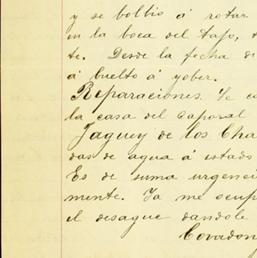 y se bolbio á rotar
en la boca del tajo,
te. Desde la fecha de
á buelto á yober.
Reparaciones. Se co
la casa del caporal
Jaguey de los Cha
das de agua á estado
Es de suma urgenci
mente. Ya me ocup
el desague dandole
Covadon